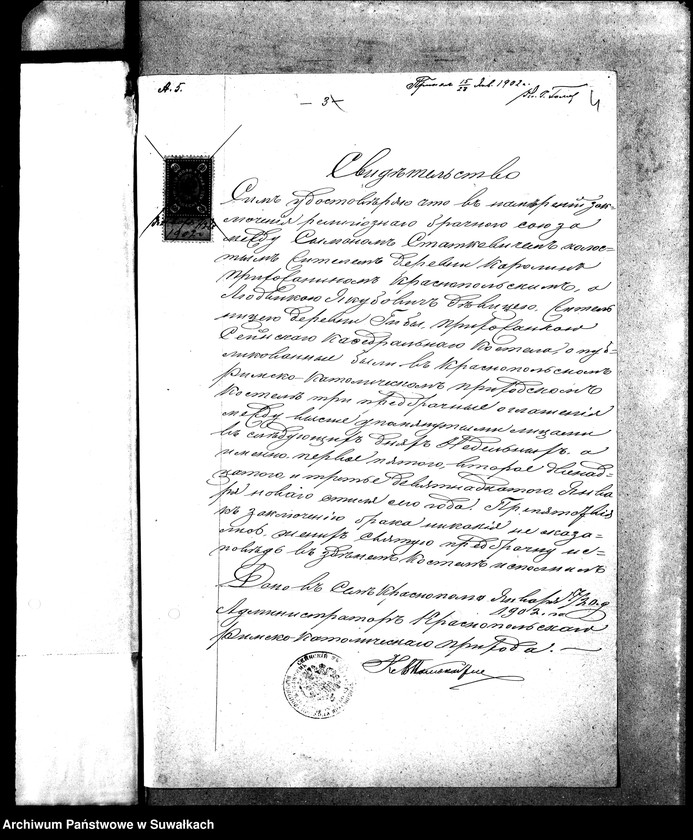 А. 5.
Принял 15/28 Янв. 1902 г.
— 3 —
4
Свидѣтельство
Симъ удостовѣряю что въ намѣреніи зак-
люченія религіознаго брачнаго союза
между Сымономъ Статкевичемъ холос-
тымъ жителемъ деревни Каролинъ
прихожаниномъ Краснопольскимъ, а
Людвикою Якубовичъ дѣвицею, житель
ницею деревни Гибы, прихожанкою
Сейнскаго кафедральнаго костела, опуб-
ликованные были въ Краснопольскомъ
Римско-католическомъ приходскомъ
костелѣ три предбрачные оглашенія
между выше упомянутыми лицами
въ слѣдующихъ дняхъ недельныхъ, а
именно: первое пятого, второе двенад-
цатого и третье девятнадцатого Янва
ря новаго стиля сего года. Препятствія
къ заключенію брака никакія не оказа-
лись, жених святую предбрачну ис-
поведь въ здешнем костелѣ исполнилъ
Дано въ Селѣ Краснополѣ Января 7/20 д.
1902. года
Администраторъ Краснопольскаго
Римско-Католическаго прихода. —
Archiwum Państwowe w Suwałkach